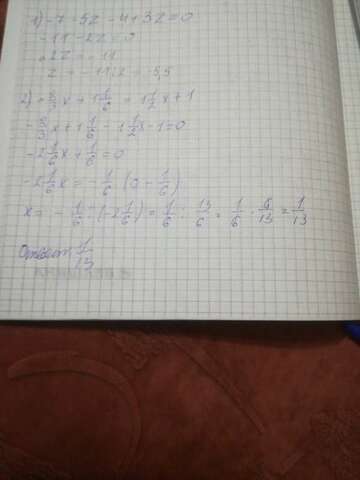 1) -7 - 5z - 4 + 3z = 0
-11 - 2z = 0
2z = -11
z = -11:2 = -5,5
2) -2/3x + 1 1/6 = 1 1/2x + 1
-2/3x + 1 1/6 - 1 1/2x - 1 = 0
-2 1/6x + 1/6 = 0
-2 1/6x = -1/6 (0 - 1/6)
x = -1/6 : (-2 1/6) = 1/6 : 13/6 = 1/6 · 6/13 = 1/13
Ответ 1/13